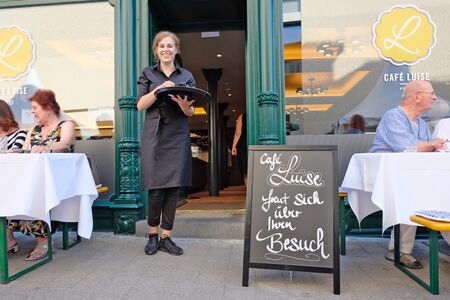 L
L
CAFÉ LUISE
Café
Luise
freut Sich
über
Ihren
Besuch